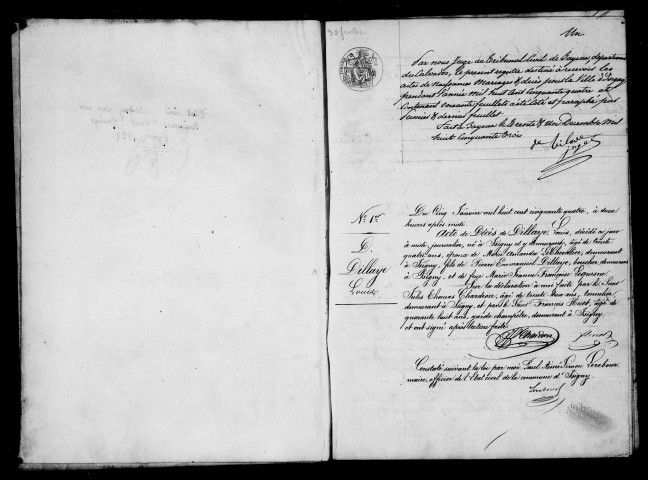 30 feuillets.
Un
Par nous Juge au Tribunal Civil de Bayeux, département
du Calvados, le présent registre destiné à recevoir les
actes de Naissances Mariages & décès pour la Ville d'Isigny
pendant l'année mil huit cent cinquante quatre et
contenant soixante feuillets a été coté et paraphé par
premier & dernier feuillet
Fait à Bayeux le trente & un Décembre mil
huit cent cinquante trois
N° 1er
D.
Dillaye
Louis
Du Cinq Janvier mil huit cent cinquante quatre, à deux
heures après midi
Acte de Décès de Dillaye Louis, décédé ce jour
à midi, journalier, né à Isigny et y demeurant, âgé de trente
quatre ans, époux de Marie Lechevallier, demeurant
à Isigny, fils de Pierre Emmanuel Dillaye, boucher, demeurant
à Isigny, et de feue Marie Jeanne Françoise Lequesne
Sur la déclaration à moi faite par le Sieur
Jules Chardron, âgé de trente trois ans, tonnelier,
demeurant à Isigny, et par le Sieur François Huet, âgé de
quarante huit ans, garde champêtre, demeurant à Isigny,
et ont signé après lecture faite
Chardron
Huet
Constaté suivant la loi par moi Paul Aimé Simon
maire, officier de l'Etat Civil de la commune d'Isigny.